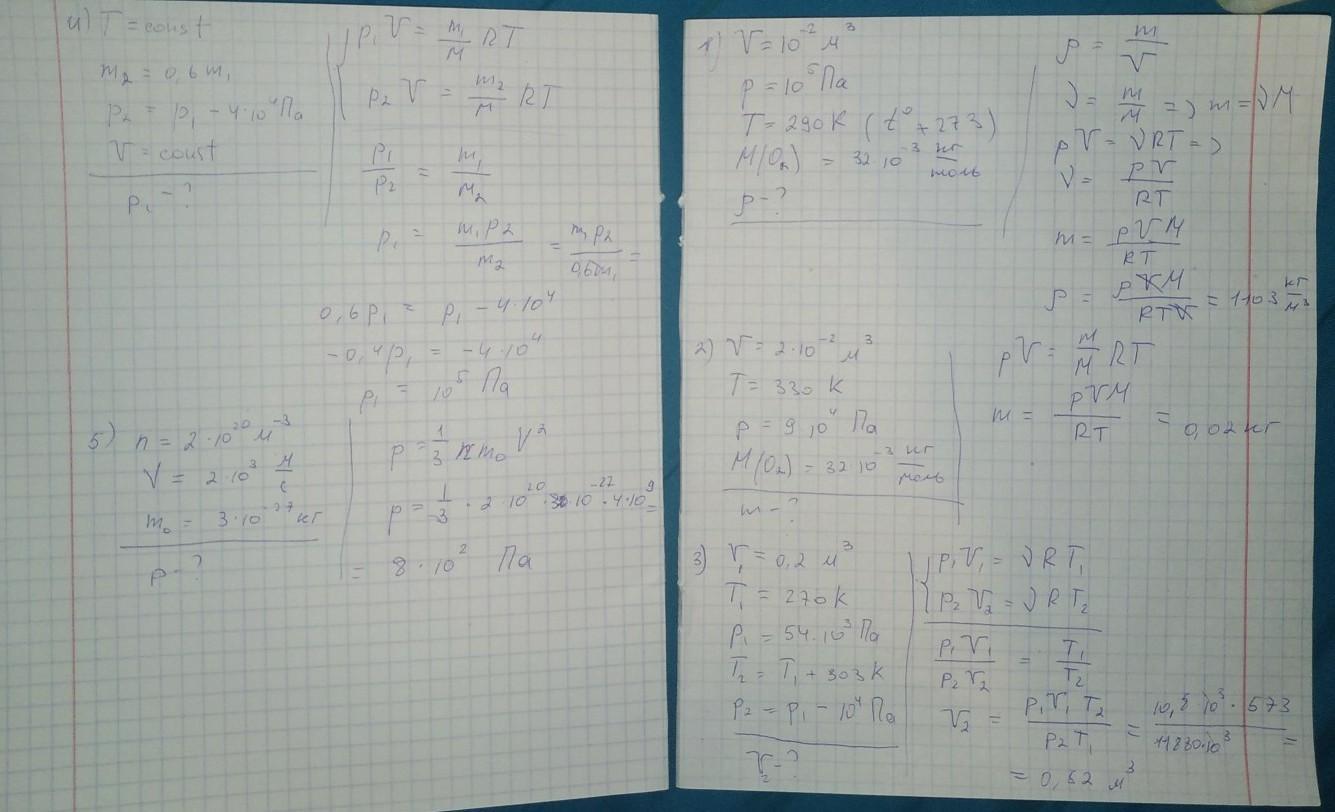 4) T = const
m₂ = 0,6 m₁
p₂ = p₁ - 4·10⁴ Па
V = const
p₁ - ?
p₁V = m₁/M RT
p₂V = m₂/M RT
p₁/p₂ = m₁/m₂
p₁ = m₁p₂/m₂ = m₁p₂/0,6m₁ =
0,6p₁ = p₁ - 4·10⁴
-0,4p₁ = -4·10⁴
p₁ = 10⁵ Па
5) n = 2·10²⁰ м⁻³
V = 2·10³ м/с
m₀ = 3·10⁻²⁷ кг
p - ?
p = 1/3 n m₀ V²
p = 1/3 · 2·10²⁰ · 3·10⁻²⁷ · 4·10⁹ =
= 8·10² Па
1) V = 10⁻² м³
p = 10⁵ Па
T = 290 К (t° + 273)
M(O₂) = 32·10⁻³ кг/моль
ρ - ?
ρ = m/V
ν = m/M => m = νM
pV = νRT =>
ν = pV/RT
m = pVM/RT
ρ = pVM/RTV = 1103 кг/м³
2) V = 2·10⁻² м³
T = 330 К
p = 9·10⁴ Па
M(O₂) = 32·10⁻³ кг/моль
m - ?
pV = m/M RT
m = pVM/RT = 0,02 кг
3) V₁ = 0,2 м³
T₁ = 270 К
p₁ = 54·10³ Па
T₂ = T₁ + 303 К
p₂ = p₁ - 10⁴ Па
V₂ - ?
p₁V₁ = νRT₁
p₂V₂ = νRT₂
p₁V₁/p₂V₂ = T₁/T₂
V₂ = p₁V₁T₂/p₂T₁ = 10,8·10³·573/11880·10³ =
= 0,52 м³